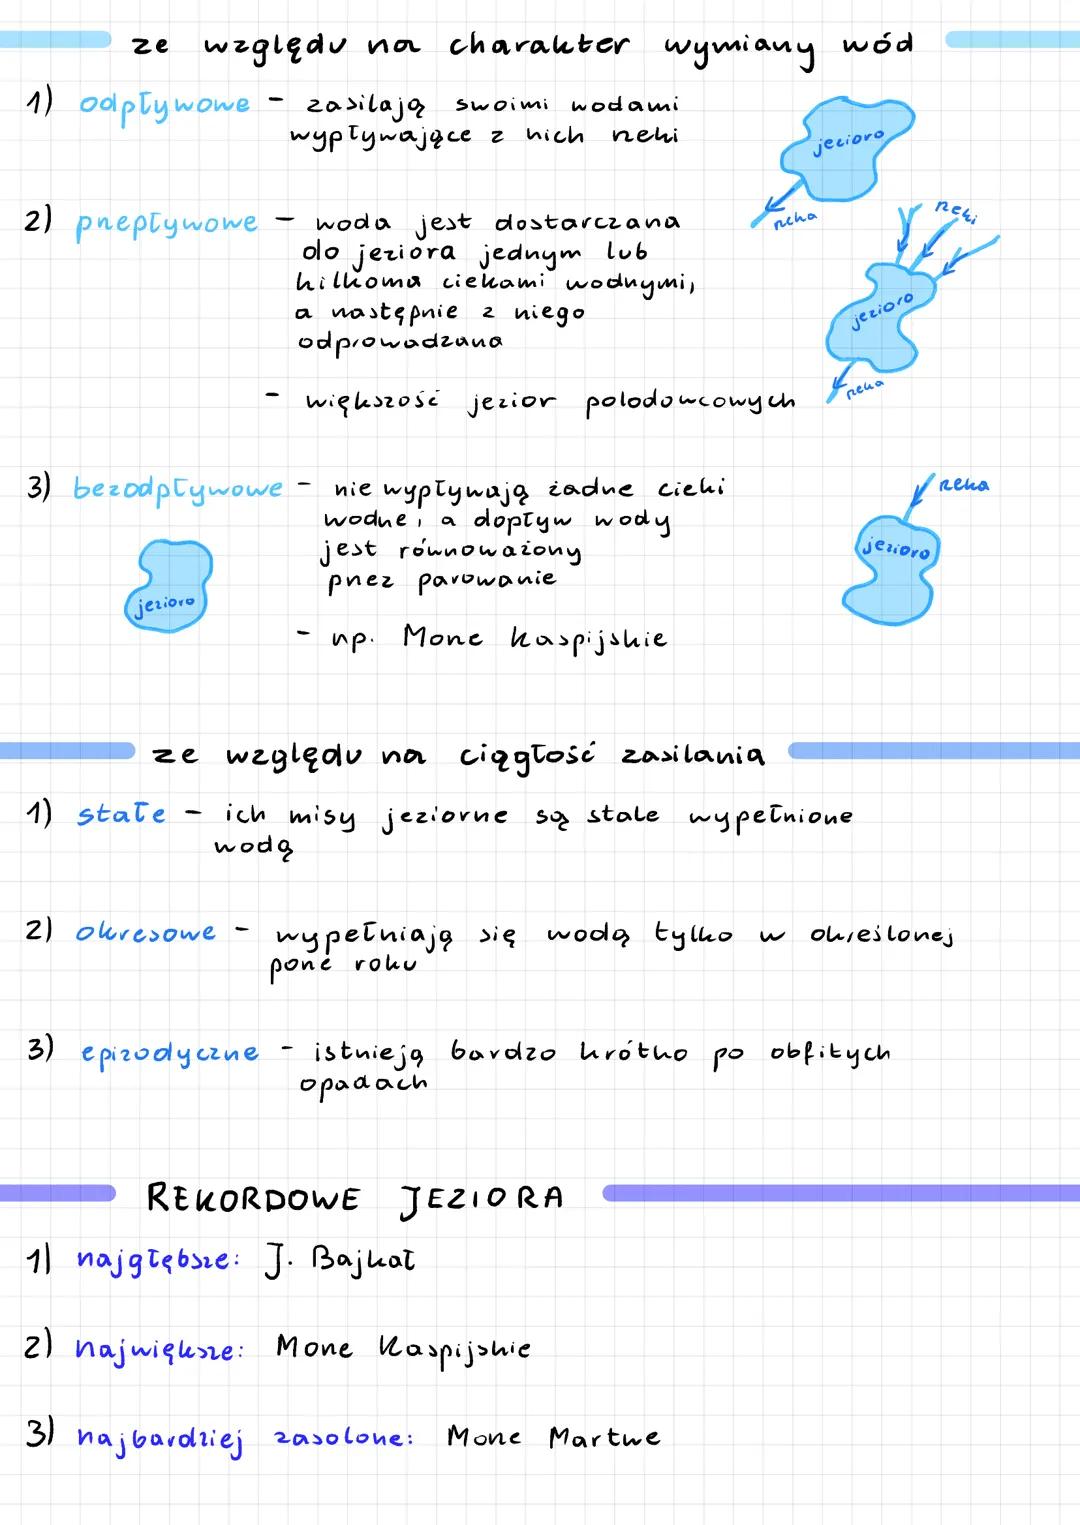 ze względu na charakter wymiany wód
1) odpływowe - zasilają swoimi wodami
wypływające z nich rzeki
jezioro
rzeka
2) przepływowe - woda jest dostarczana
do jeziora jednym lub
kilkoma ciekami wodnymi,
a następnie z niego
odprowadzana
- większość jezior polodowcowych
rzeki
jezioro
rzeka
3) bezodpływowe - nie wypływają żadne cieki
wodne, a dopływ wody
jest równoważony
przez parowanie
- np. Morze Kaspijskie
jezioro
rzeka
jezioro
ze względu na ciągłość zasilania
1) stałe - ich misy jeziorne są stale wypełnione
wodą
2) okresowe - wypełniają się wodą tylko w określonej
porze roku
3) epizodyczne - istnieją bardzo krótko po obfitych
opadach
REKORDOWE JEZIORA
1) najgłębsze: J. Bajkał
2) największe: Morze Kaspijskie
3) najbardziej zasolone: Morze Martwe